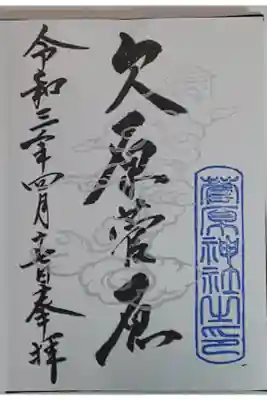 菅原神社之印
久原菅原
令和三年四月 日奉拝